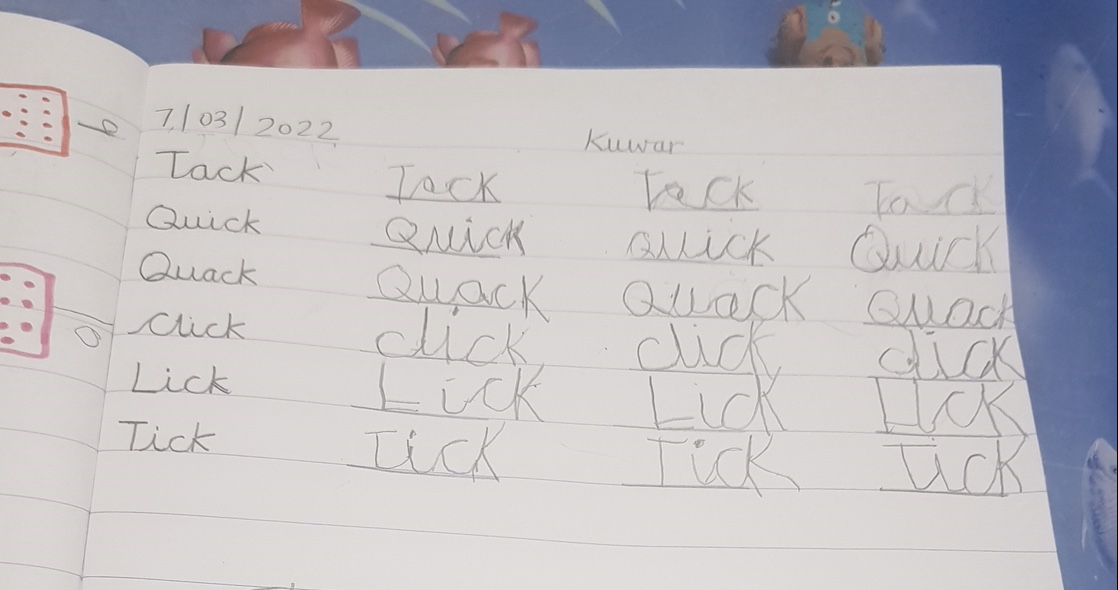 7/03/2022 Kuwar
Tack Tack Tack Tack
Quick Quick Quick Quick
Quack Quack Quack Quack
Click click click click
Lick Lick Lick Lick
Tick Tick Tick Tick